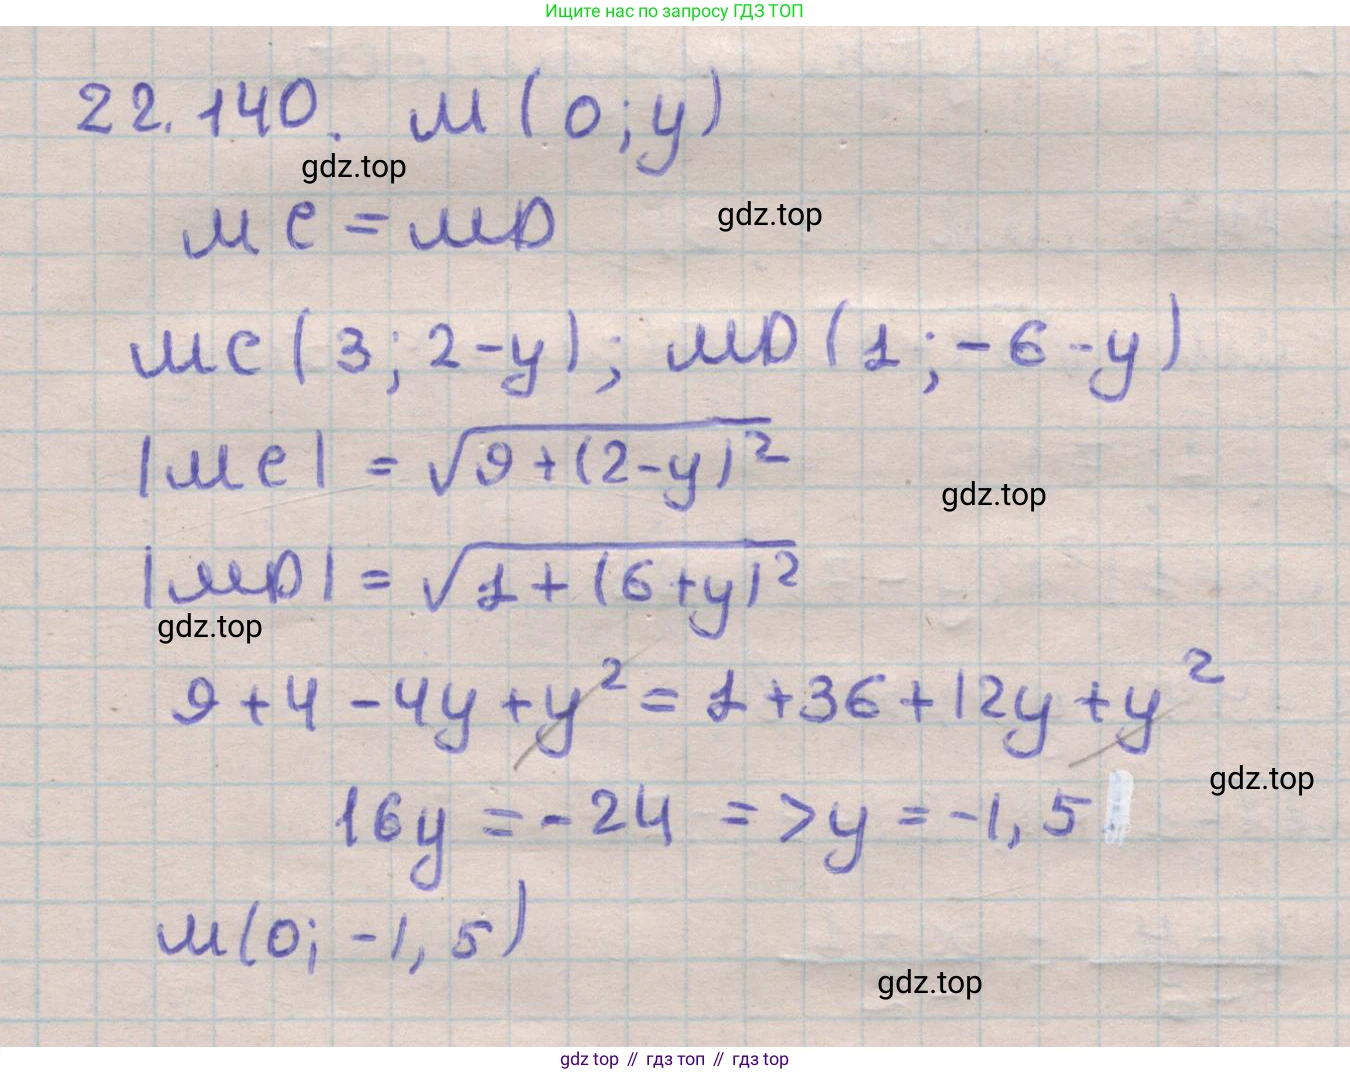 Ищите нас по запросу ГДЗ ТОП
22.140. M(0;y)
gdz.top
MC = MD
gdz.top
MC(3;2-y); MD(1;-6-y)
|MC| = √9+(2-y)²
gdz.top
|MD| = √1+(6+y)²
gdz.top
9+4-4y+y²=1+36+12y+y²
gdz.top
16y=-24 =>y=-1,5
M(0;-1,5)
gdz.top
gdz top // гдз топ // гдз top